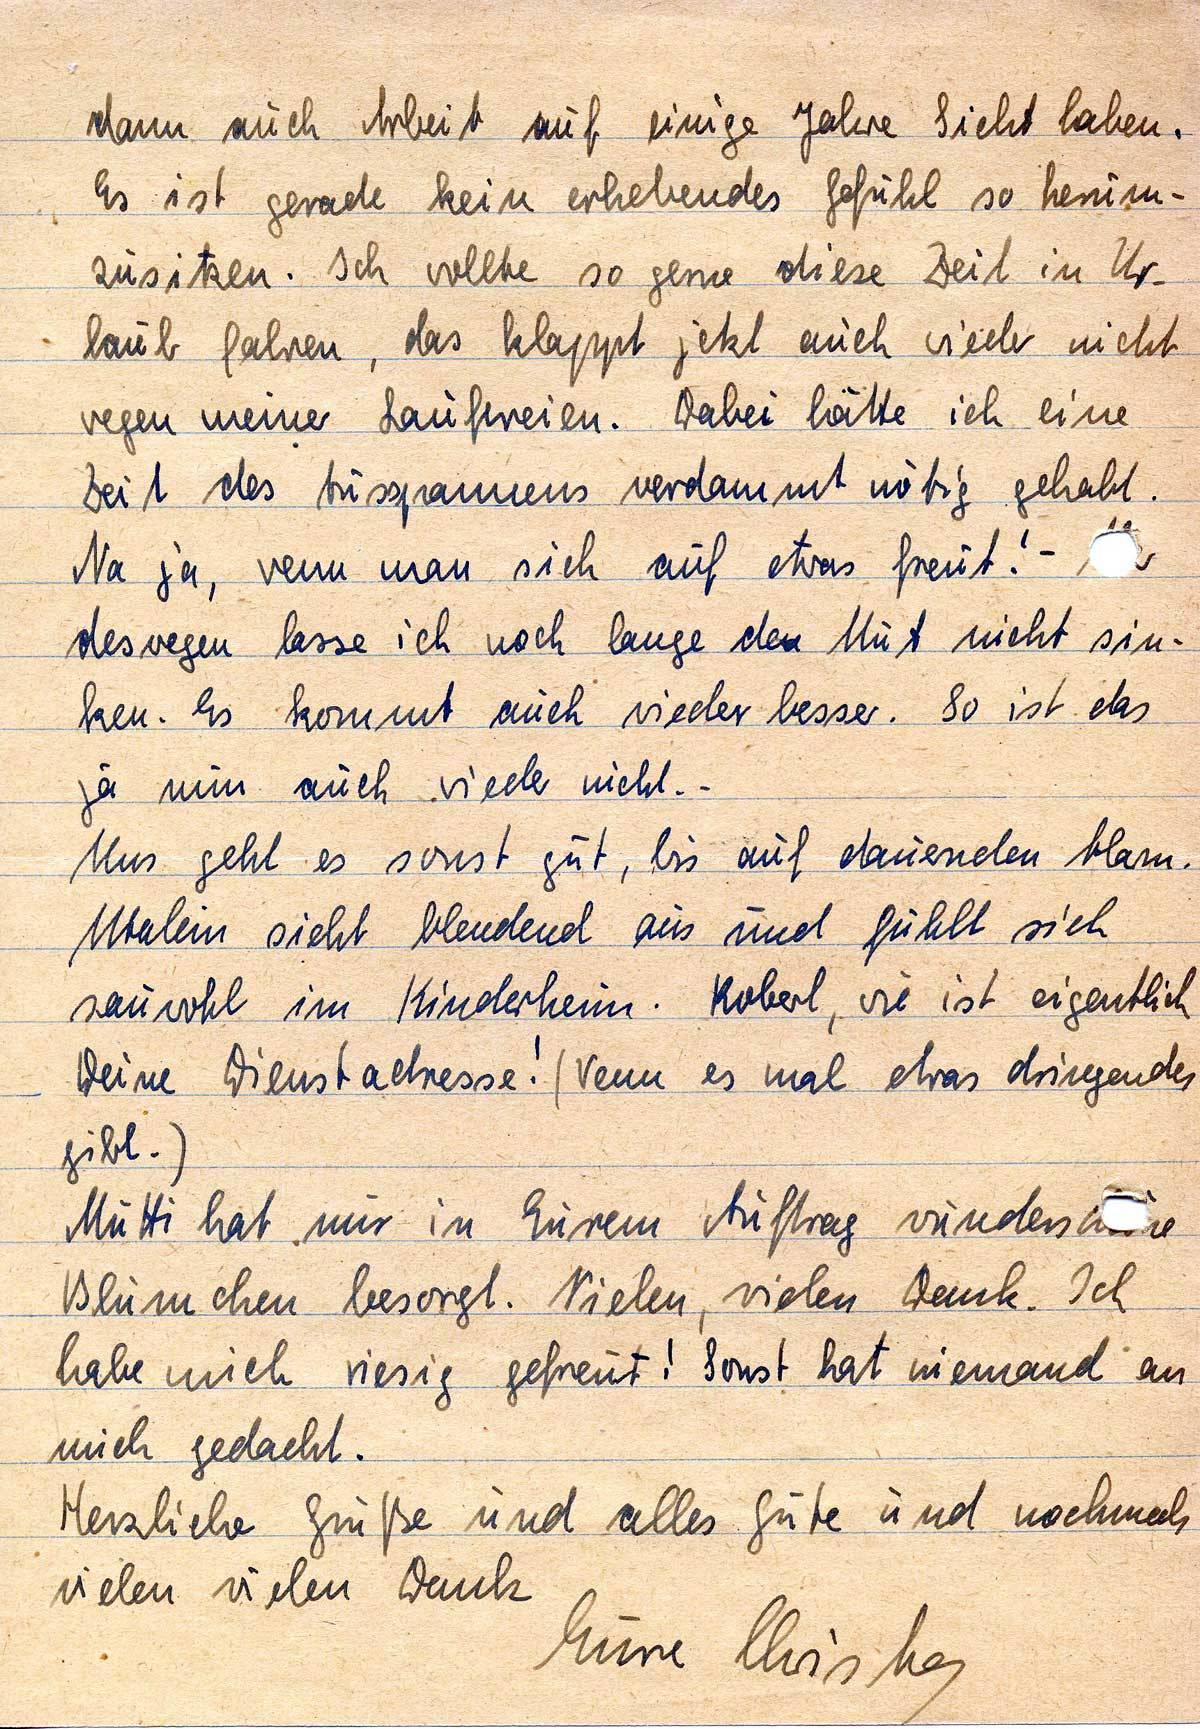 dann auch Arbeit auf einige Jahre Sicht haben.
Es ist gerade kein erhebendes Gefühl so herum-
zusitzen. Ich wollte so gerne diese Zeit in Ur-
laub fahren, das klappt jetzt auch wieder nicht
wegen meiner Lauffereien. Dabei hätte ich eine
Zeit des Ausspannens verdammt nötig gehabt.
Na ja, wenn man sich auf etwas freut! -
deswegen lasse ich noch lange den Mut nicht sin-
ken. Es kommt auch wieder besser. So ist das
ja nun auch wieder nicht. -
Uns geht es sonst gut, bis auf dauernden
sieht blendend aus und fühlt sich
sauwohl im Kinderheim. Robert, wie ist eigentlich
Deine Dienstadresse! (Wenn es mal etwas dringendes
gibt.)
Mutti hat mir in Eurem Auftrag wunderschöne
Blümchen besorgt. Vielen, vielen Dank. Ich
habe mich riesig gefreut! Sonst hat niemand an
mich gedacht.
Herzliche Grüße und alles Gute und nochmals
vielen vielen Dank
Eure